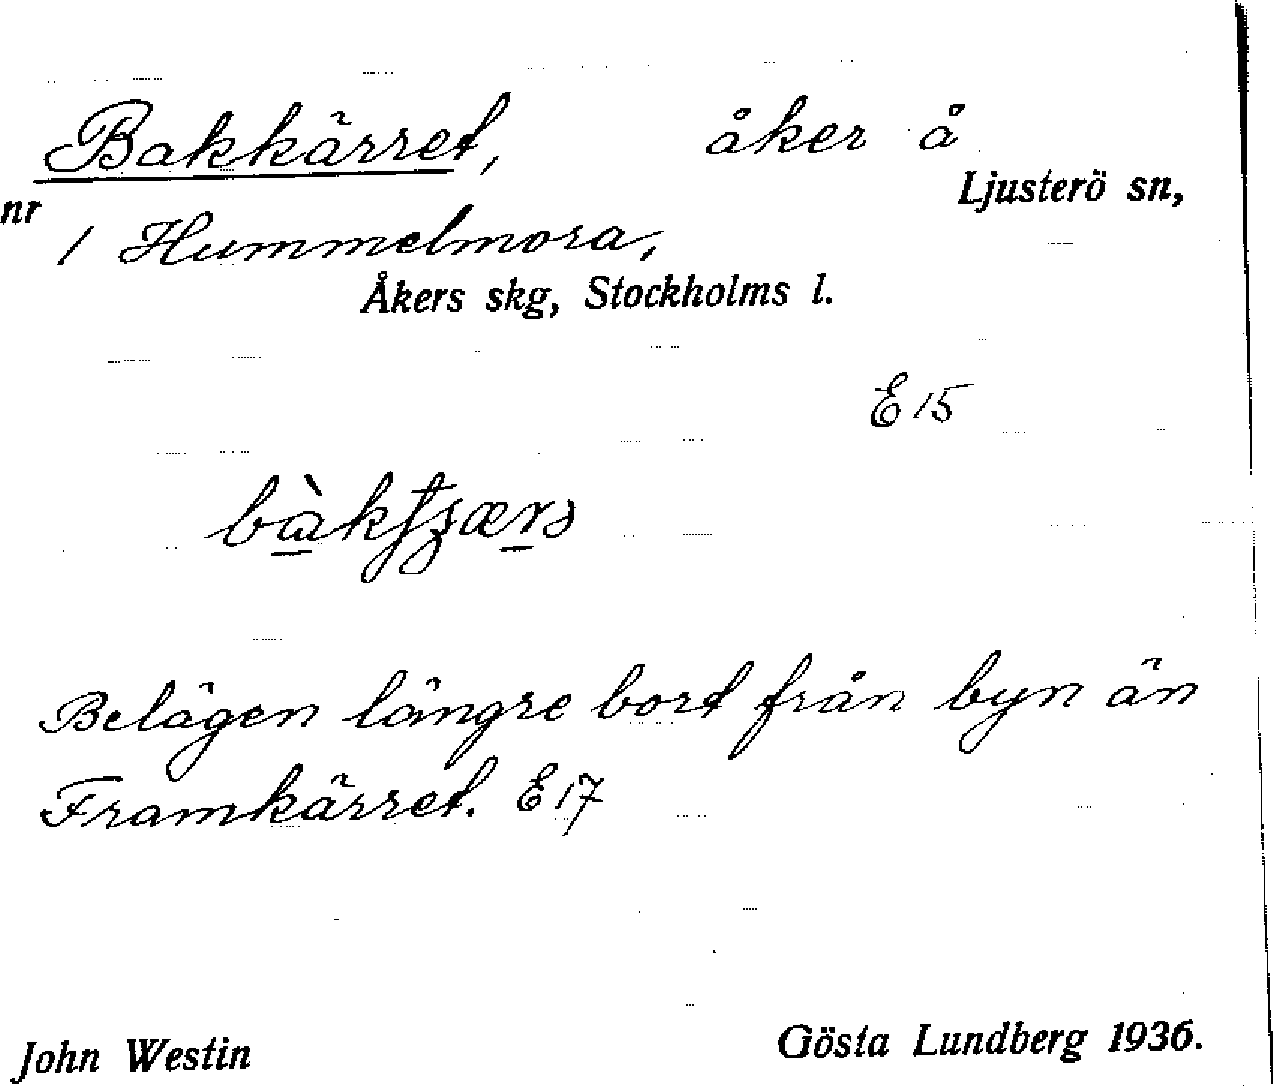 Bakkärret, åker å
Ljusterö sn,
nr 1 Hummelmora,
Åkers skg, Stockholms l.
E 15
Belägen längre bort från byn än
Framkärret. E 17
John Westin Gösta Lundberg 1936.